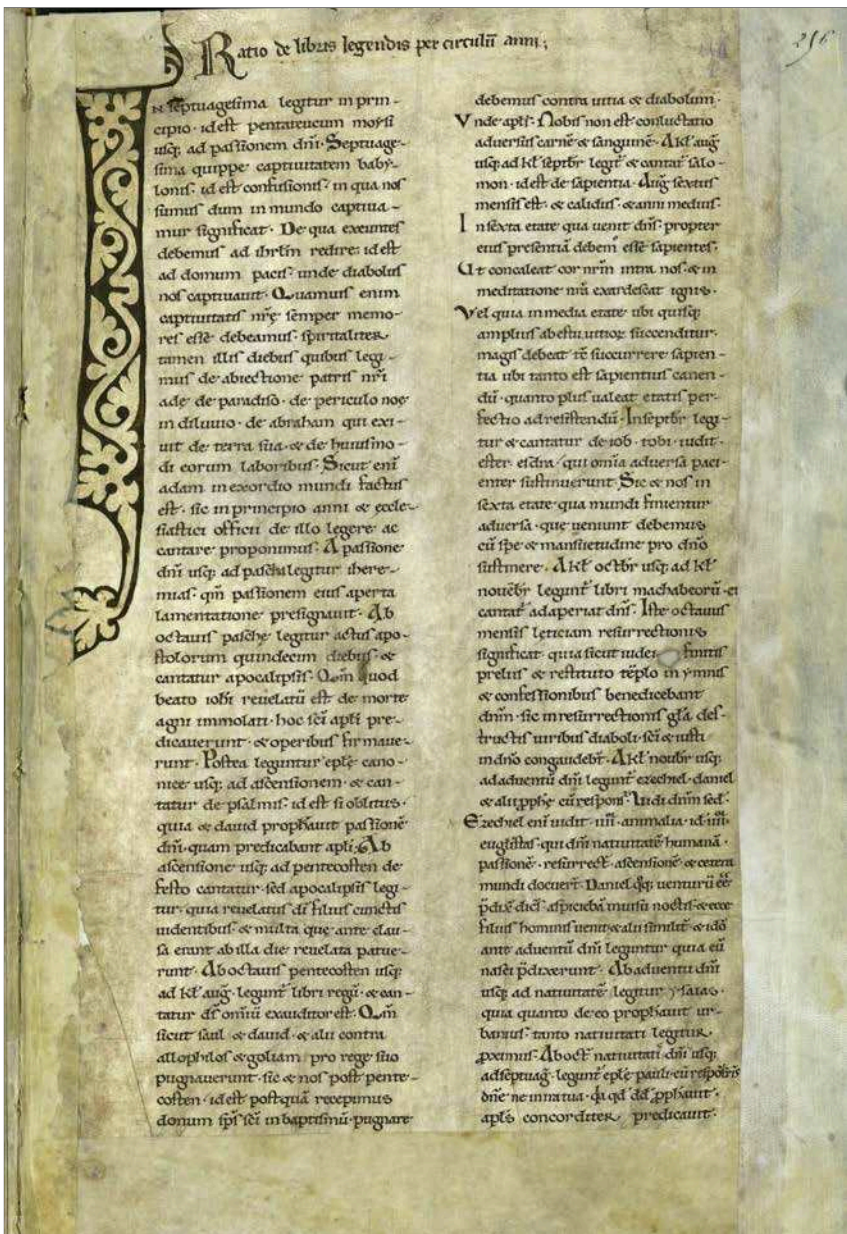 Ratio de libris legendis per circulū anni;
256
IN septuagesima legitur in prin-
cipio · id est pentateucum moysi
usq; ad passionem dn̄i · Septuage-
sima quippe captiuitatem baby-
lonis · id est confusionis · in qua nos
sumus dum in mundo captiua-
mur significat · De qua exeuntes
debemus ad ihrl̄m redire · id est
ad domum pacis · unde diabolus
nos captiuauit · Quamuis enim
captiuitatis nr̄ę semper memo-
res esse debeamus · spiritaliter
tamen illis diebus quibus legi-
mus de abiectione patris nr̄i
adę de paradiso · de periculo noe
in diluuio · de abraham qui exi-
uit de terra sua · & de huiusmo-
di eorum laboribus · Sicut enī
adam in exordio mundi factus
est · sic in principio anni & eccle-
siastici officii de illo legere ac
cantare proponimus · A passione
dn̄i usq; ad pascha legitur ihere-
mias · qm̄ passionem eius aperta
lamentatione presignauit · Ab
octauis pasche legitur actus apo-
stolorum quindecim diebus · &
cantatur apocalipsis · Qm̄ quod
beato ioh̄i reuelatū est de morte
agni immolati · hoc sc̄i apl̄i pre-
dicauerunt · & operibus firmaue-
runt · Postea leguntur epl̄ę cano-
nice usq; ad ascensionem · & can-
tatur de psalmis · id est si oblitus ·
quia & dauid prophauit passionē
dn̄i · quam predicabant apl̄i · Ab
ascensione usq; ad pentecosten de
festo cantatur · sed apocalipsis legi-
tur · quia reuelatus dī filius cunctis
uidentibus · & multa que ante clau-
sa erant ab illa die reuelata patue-
runt · Ab octauis pentecosten usq;
ad kl̄ aug · legunt̄ libri regū · & can-
tatur dš omniū exauditor est · Qm̄
sicut saul & dauid · & alii contra
allophilos & goliam pro rege suo
pugnauerunt · sic & nos post pente-
costen · id est postquā recepimus
donum sps̄ sc̄i in baptismū · pugnare
debemus contra uitia & diabolum ·
Vnde apl̄s · Nobis non est conluctatio
aduersus carnē & sanguinē · A kl̄ aug
usq; ad kl̄ septbr̄ legit̄ & cantat̄ salo-
mon · id est de sapientia · Aug sextus
mensis est · & calidus · & anni medius ·
In sexta etate qua uenit dn̄s · propter
eius presentiā debem̄ esse sapientes ·
Ut concaleat cor nr̄m intra nos · & in
meditatione nr̄a exardescat ignis ·
Vel quia in media etate ubi quisq;
amplius ab estu uitior̄ succenditur ·
magis debeat ēē succurrere sapien-
tia ubi tanto est sapientius canen-
dū · quanto plus ualeat etatis per-
fectio ad resistendū · In septbr̄ legi-
tur & cantatur de iob · tobi · iudit ·
ester · esdra · qui omīa aduersa paci-
enter sustinuerunt · Sic & nos in
sexta etate qua mundi finientur
aduersa · que ueniunt debemus
cū spe & mansuetudine pro dn̄o
sustinere · A kl̄ octbr̄ usq; ad kl̄
nouēbr̄ legunt̄ libri machabeorū · et
cantat̄ adaperiat dn̄s · Iste octauus
mensis lęticiam resurrectionis
significat · quia sicut iudei finitis
preliis & restituto tēplo in ymnis
& confessionibus benedicebant
dn̄m · sic in resurrectionis gl̄a des-
tructis uiribus diaboli · sc̄i & iusti
in dn̄o congaudebt̄ · A kl̄ noubr̄ usq;
ad aduentū dn̄i legunt̄ ezechiel · daniel
& alii pph̄e cū respons̄ · Uidi dn̄m sed̄ ·
Ezechiel enī uidit · iiii · animalia · id · iiii ·
euglistas · qui dn̄i natiuitatē humanā ·
passionē · resurrect̄ · ascensionē · & cetera
mundi docuer̄t · Daniel qq; uenturū ēē
p̄dix̄ dicēs · aspiciebā in uisu noctis · & ecce
filius hominis uenit · & alii similit̄ · & idō
ante aduentū dn̄i leguntur quia eū
nasci p̄dixerunt · Ab aduentu dn̄i
usq; ad natiuitatē legitur ysaias ·
quia quanto de eo prophauit ur-
banius · tanto natiuitati legitur
proximus · Ab oct̄ natiuitati dn̄i usq;
ad septuaḡ · legunt̄ epl̄ę pauli · cū respōsoriis
dn̄e ne in ira tua · qa qd̄ dd̄ pphauit ·
apl̄s concorditer predicauit ·